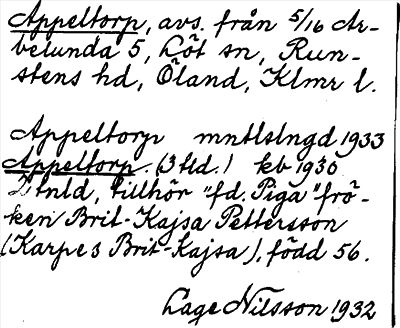 Appeltorp, avs. från 5/16 Ar-
belunda 5, Löt sn, Run-
stens hd, Öland, Klmr l.
Appeltorp mntlslngd 1933
Appeltorp. (3 fld.) kb 1930
tillhör "fd. Piga" frö-
ken Brit-Kajsa Pettersson
(Karpes Brit-Kajsa), född 56.
Lage Nilsson 1932